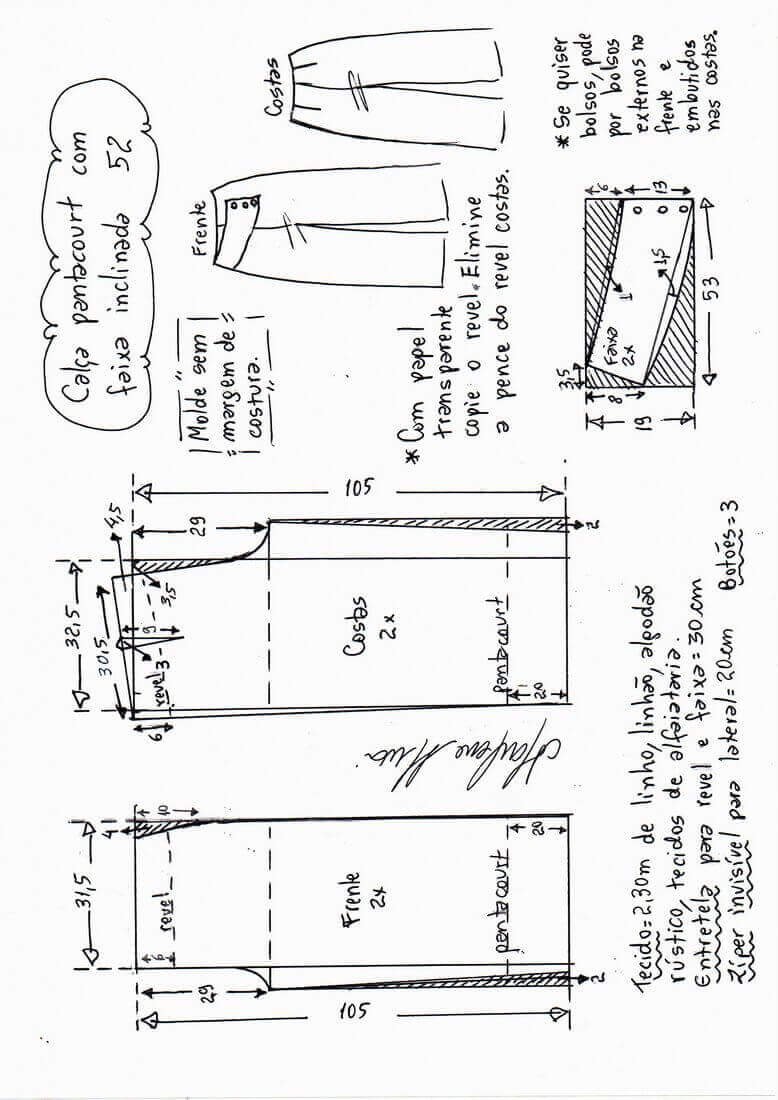 Calça pantacourt com
faixa inclinada 52
"Molde sem"
margem de
costura.
Frente
Costas
* Com papel
transparente
copie o revel. Elimine
a pence do revel costas.
* Se quiser
bolsos, pode
por bolsos
externos na
frente e
embutidos
nas costas.
31,5
4
10
6
revel
29
105
Frente
2x
pantacourt
20
2
32,5
30,5
4,5
9
3,5
3
6
revel
29
105
Costas
2x
pantacourt
20
2
Marlene Mukai
3,5
8
19
Faixa
2x
1
1,5
6
13
53
Tecido=2,30m de linho, linhão, algodão
rústico, tecidos de alfaiataria.
Entretela para revel e faixa=30cm
Zíper invisível para lateral=20cm Botões=3